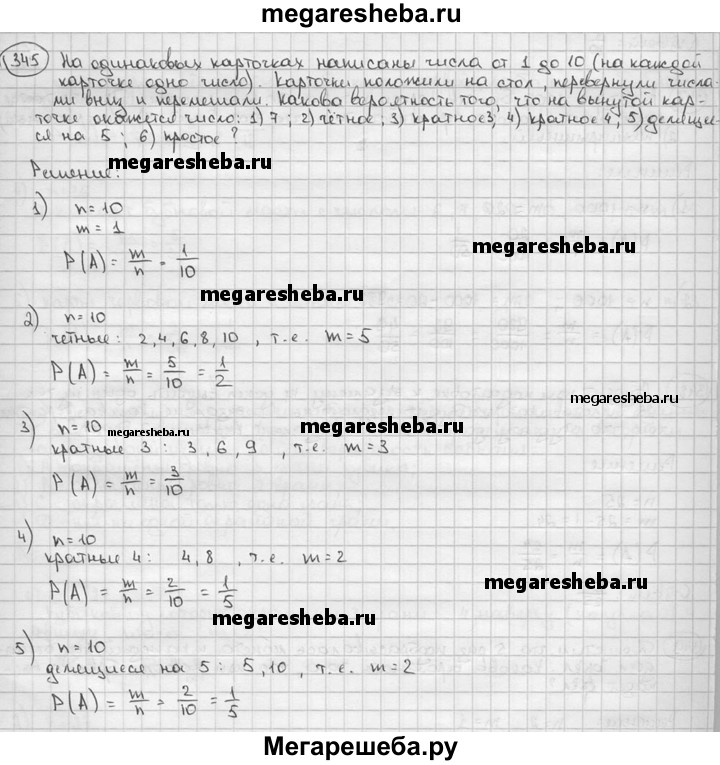 megaresheba.ru
345 На одинаковых карточках написаны числа от 1 до 10 (на каждой
карточке одно число). Карточки положили на стол, перевернули числа-
ми вниз и перемешали. Какова вероятность того, что на вынутой кар-
точке окажется число: 1) 7; 2) чётное; 3) кратное3; 4) кратное 4; 5) делящее-
ся на 5; 6) простое?
megaresheba.ru
Решение:
1) n=10
m=1
megaresheba.ru
P(A) = m/n = 1/10
megaresheba.ru
2) n=10
чётные: 2,4,6,8,10, т.е. m=5
P(A) = m/n = 5/10 = 1/2
megaresheba.ru
3) n=10
megaresheba.ru
megaresheba.ru
кратные 3: 3, 6, 9, т.е. m=3
P(A) = m/n = 3/10
4) n=10
кратные 4: 4, 8, т.е. m=2
P(A) = m/n = 2/10 = 1/5
megaresheba.ru
megaresheba.ru
5) n=10
делящиеся на 5: 5, 10, т.е. m=2
P(A) = m/n = 2/10 = 1/5
Мегарешеба.ру